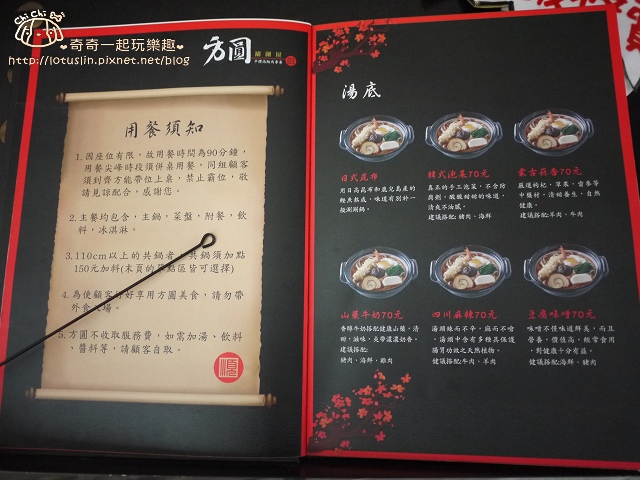 Chi Chi
奇奇一起玩樂趣
http://lotuslin.pixnet.net/blog
方圓
用餐須知
1.因座位有限，故用餐時間為90分鐘，
用餐尖峰時段須併桌用餐，同組顧客
須到齊方能帶位上桌，禁止霸位，敬
請見諒配合，感謝您。
2.主餐均包含，主鍋，菜盤，附餐，飲
料，冰淇淋。
3.110cm以上的共鍋者，共鍋須加點
150元加料(末頁的 點區皆可選擇)
4.為使顧客 好享用方圓美食，請勿帶
外食 場。
5.方圓不收取服務費，如需加湯、飲料
，醬料等，請顧客自取。
湯底
日式昆布
用日高昆布和鹿兒島產的
鰹魚熬成，味道有別於一
般涮涮鍋。
韓式泡菜70元
真正的手工泡菜，不含防
腐劑，酸酸甜甜的味道，
清爽不油膩。
建議搭配:豬肉、海鮮
蒙古蒜香70元
嚴選枸杞，草果，當蔘等
中藥材，清甜養生，自然
健康。
建議搭配:羊肉、牛肉
山藥牛奶70元
香醇牛奶搭配健康山藥，清
甜，滋味，夾帶濃濃奶香。
建議搭配:
豬肉、海鮮、雞肉
四川麻辣70元
湯頭辣而不辛，麻而不嗆
，湯頭中含有多種具保護
腸胃功效之天然植物。
建議搭配:牛肉、羊肉
豆腐味噌70元
味噌不僅味道鮮美，而且
營養，價值高，經常食用
，對健康十分有益。
建議搭配:海鮮、豬肉